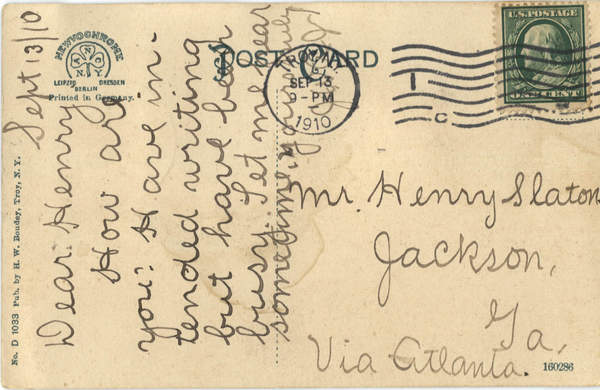 Sept 13/10
Dear Henry
How are
you? Have in-
tended writing
but have been
busy. Let me hear
sometime.
POST CARD
NEWVOCHROME
A N C
N.Y.
LEIPZIG DRESDEN
BERLIN
Printed in Germany.
TROY, N.Y.
SEP 13
9-PM
1910
1
C
U.S. POSTAGE
Mr. Henry Slaton
Jackson,
Ga,
Via Atlanta.
No. D 1033 Pub. by H. W. Boudey, Troy, N. Y.
160286